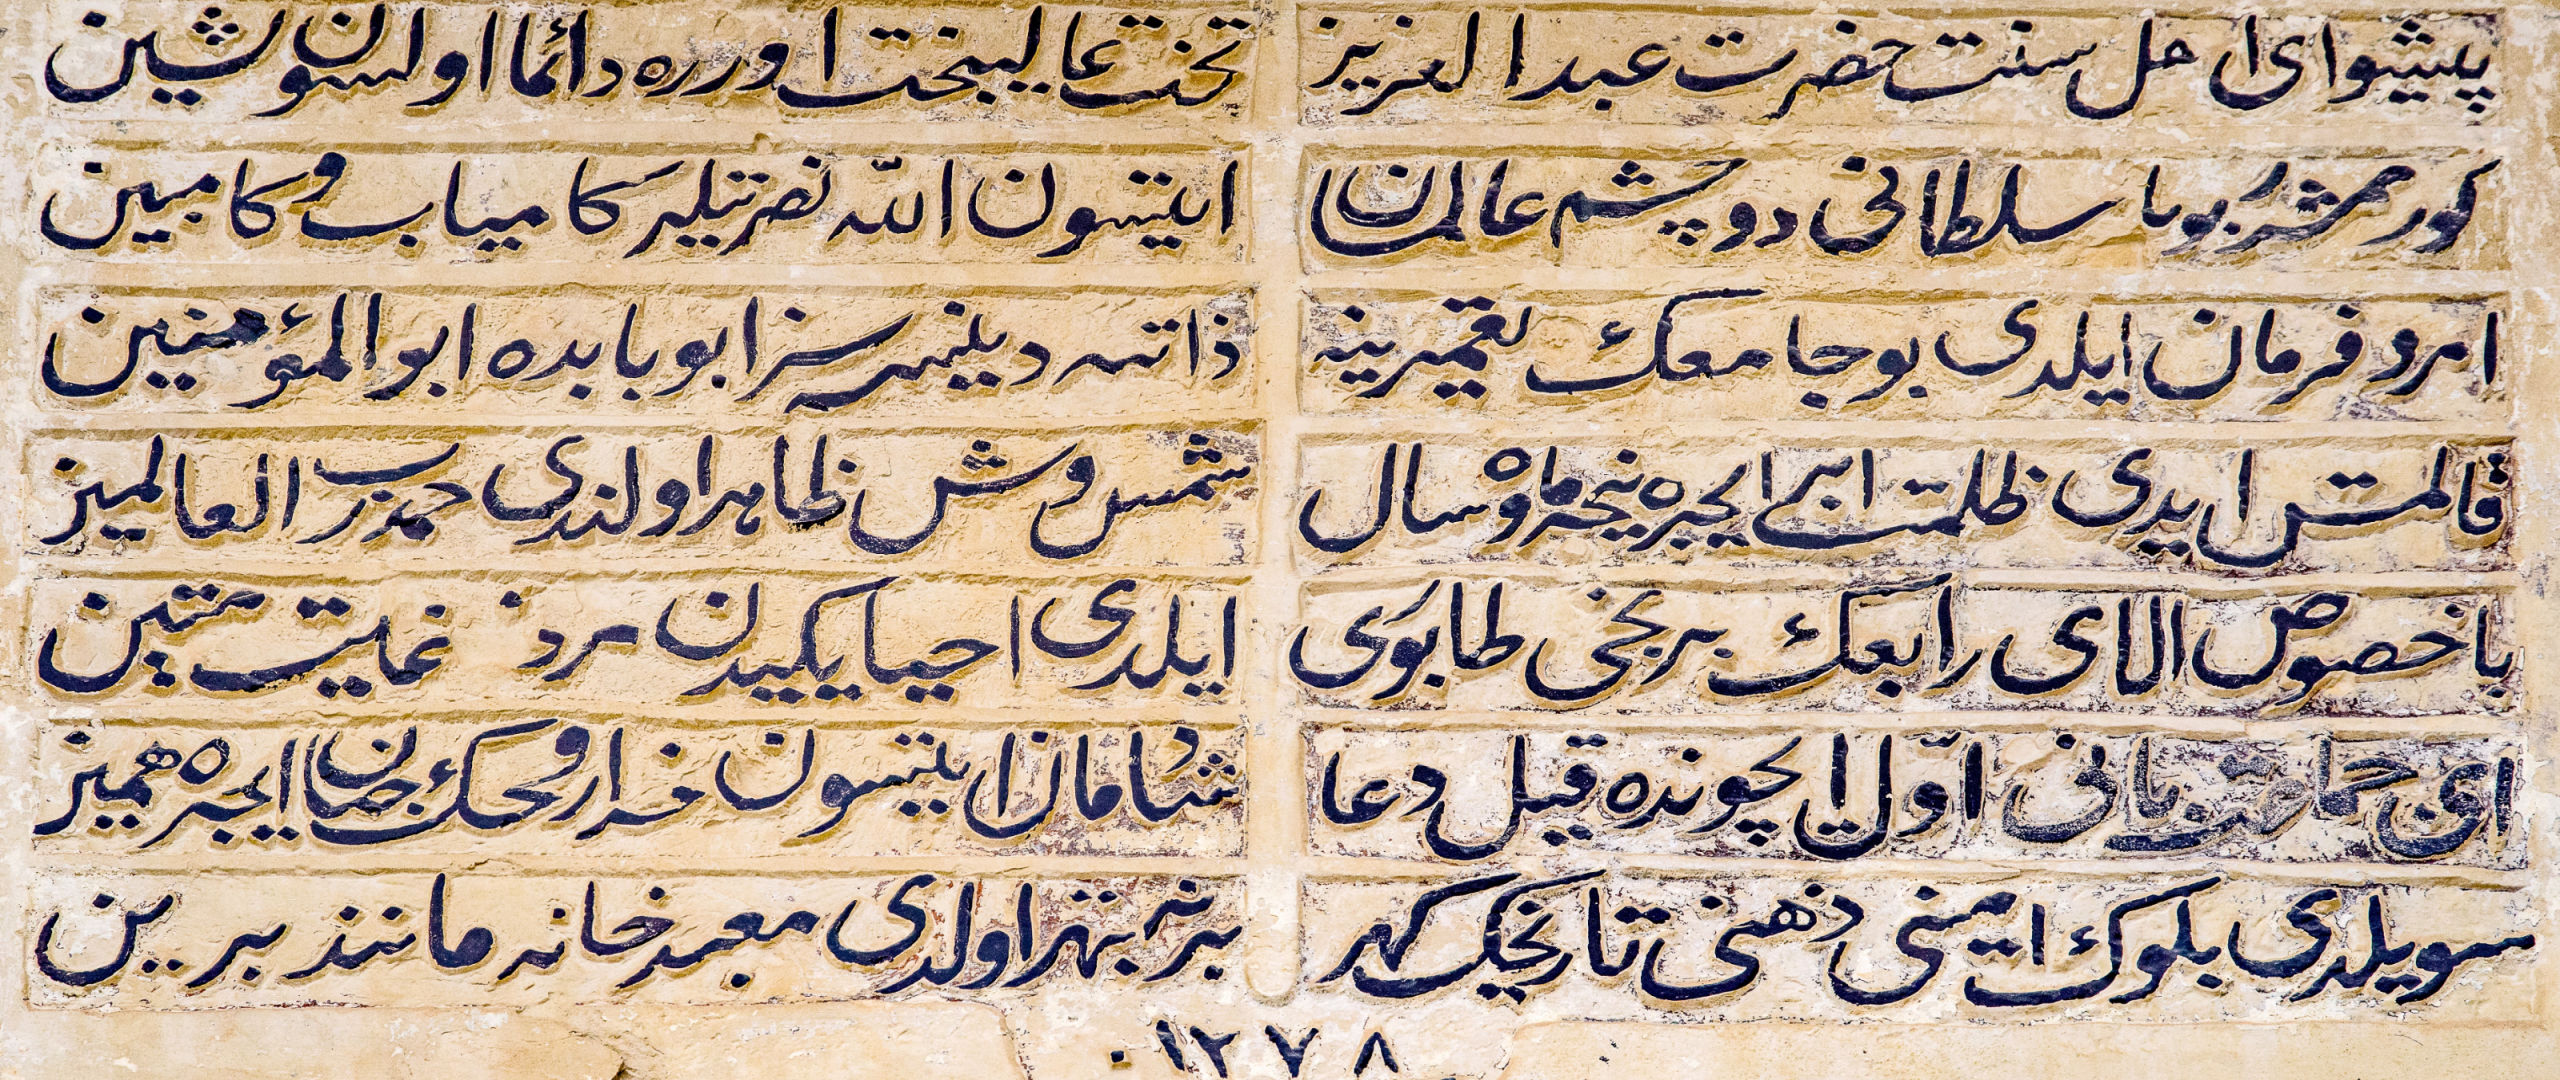 پیشوای اهل سنت حضرت عبدالعزیز
تخت عالیبخت اوزره دائما اولسون نشین
کورممشدر بویله سلطانی دو چشم عالمان
ایتسون الله نصرتیله کامیاب و کامبین
امر و فرمان ایلدی بو جامعك تعمیرینه
ذاتنه دینسه سزا بو بابده ابو المؤمنین
قالمش ایدی ظلمت ابر ایچره نیجه ماه و سال
شمس وش ظاهر اولندی حمد رب العالمین
باخصوص الای رابعك برنجی طابوری
ایلدی احیا یکیدن مرد غملیت متین
ای حماقت بانی اول ایچونده قیل دعا
شادمان ایتسون خدا روحك جنان ایچره همین
سویلدی بلوك امینی ذهنی تاریخك کهر
بربرندن بهتر اولدی معبد خانه مانند برین
١٢٧٨